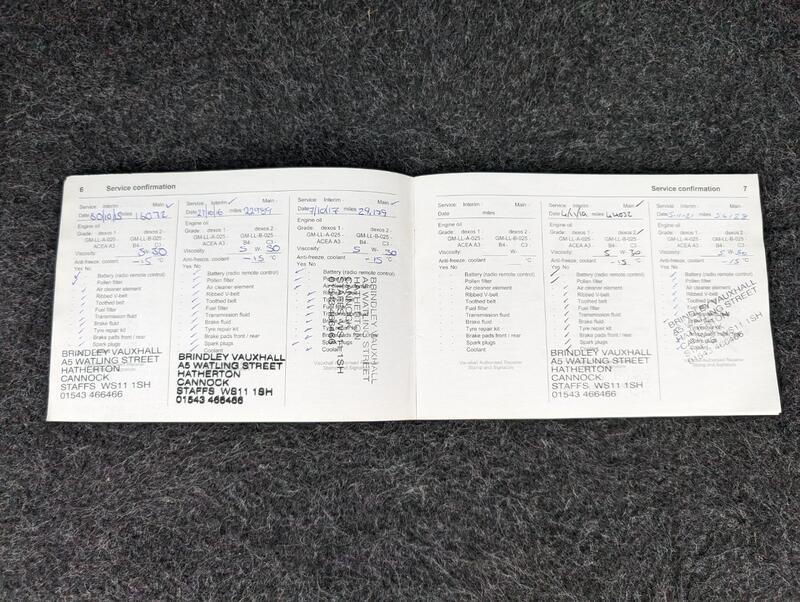 6 Service confirmation
Service - Interim - Main - ✓
Date 30/10/15 miles 16072
Engine oil
Grade: dexos 1 - dexos 2 -
GM-LL-A-025 - GM-LL-B-025 -
ACEA A3 - B4 - C3
Viscosity: 5 W- 30
Anti-freeze, coolant -15 °C
Yes No
Battery (radio remote control)
Pollen filter
Air cleaner element
Ribbed V-belt
Toothed belt
Fuel filter
Transmission fluid
Brake fluid
Tyre repair kit
Brake pads front / rear
Spark plugs
Coolant
BRINDLEY VAUXHALL
A5 WATLING STREET
HATHERTON
CANNOCK
STAFFS WS11 1SH
01543 466466
Service - Interim - ✓ Main -
Date 21/10/16 miles 22989
Engine oil
Grade: dexos 1 - dexos 2 -
GM-LL-A-025 - GM-LL-B-025 -
ACEA A3 - B4 - C3
Viscosity: 5 W- 30
Anti-freeze, coolant -15 °C
Yes No
Battery (radio remote control)
Pollen filter
Air cleaner element
Ribbed V-belt
Toothed belt
Fuel filter
Transmission fluid
Brake fluid
Tyre repair kit
Brake pads front / rear
Spark plugs
Coolant
BRINDLEY VAUXHALL
A5 WATLING STREET
HATHERTON
CANNOCK
STAFFS WS11 1SH
01543 466466
Service - Interim - Main - ✓
Date 7/10/17 miles 29,179
Engine oil
Grade: dexos 1 - dexos 2 -
GM-LL-A-025 - GM-LL-B-025 -
ACEA A3 - B4 - C3
Viscosity: 5 W- 30
Anti-freeze, coolant -15 °C
Yes No
Battery (radio remote control)
Pollen filter
Air cleaner element
Ribbed V-belt
Toothed belt
Fuel filter
Transmission fluid
Brake fluid
Tyre repair kit
Brake pads front / rear
Spark plugs
Coolant
BRINDLEY VAUXHALL
A5 WATLING STREET
HATHERTON
CANNOCK
STAFFS WS11 1SH
01543 466466
Service confirmation 7
Service - Interim - Main -
Date miles
Engine oil
Grade: dexos 1 - dexos 2 -
GM-LL-A-025 - GM-LL-B-025 -
ACEA A3 - B4 - C3
Viscosity: W-
Anti-freeze, coolant °C
Yes No
Battery (radio remote control)
Pollen filter
Air cleaner element
Ribbed V-belt
Toothed belt
Fuel filter
Transmission fluid
Brake fluid
Tyre repair kit
Brake pads front / rear
Spark plugs
Coolant
Vauxhall Authorised Repairer
Stamp and Signature
Service - Interim - Main - ✓
Date miles 44032
Engine oil
Grade: dexos 1 - dexos 2 - ✓
GM-LL-A-025 - GM-LL-B-025 -
ACEA A3 - B4 - C3
Viscosity: 5 W- 30
Anti-freeze, coolant -15 °C
Yes No
Battery (radio remote control)
Pollen filter
Air cleaner element
Ribbed V-belt
Toothed belt
Fuel filter
Transmission fluid
Brake fluid
Tyre repair kit
Brake pads front / rear
Spark plugs
Coolant
BRINDLEY VAUXHALL
A5 WATLING STREET
HATHERTON
CANNOCK
STAFFS WS11 1SH
01543 466466
Service - Interim - Main -
Date miles
Engine oil
Grade: dexos 1 - dexos 2 -
GM-LL-A-025 - GM-LL-B-025 -
ACEA A3 - B4 - C3
Viscosity: 5 W- 30
Anti-freeze, coolant -15 °C
Yes No
Battery (radio remote control)
Pollen filter
Air cleaner element
Ribbed V-belt
Toothed belt
Vauxhall Authorised Repairer
Stamp and Signature